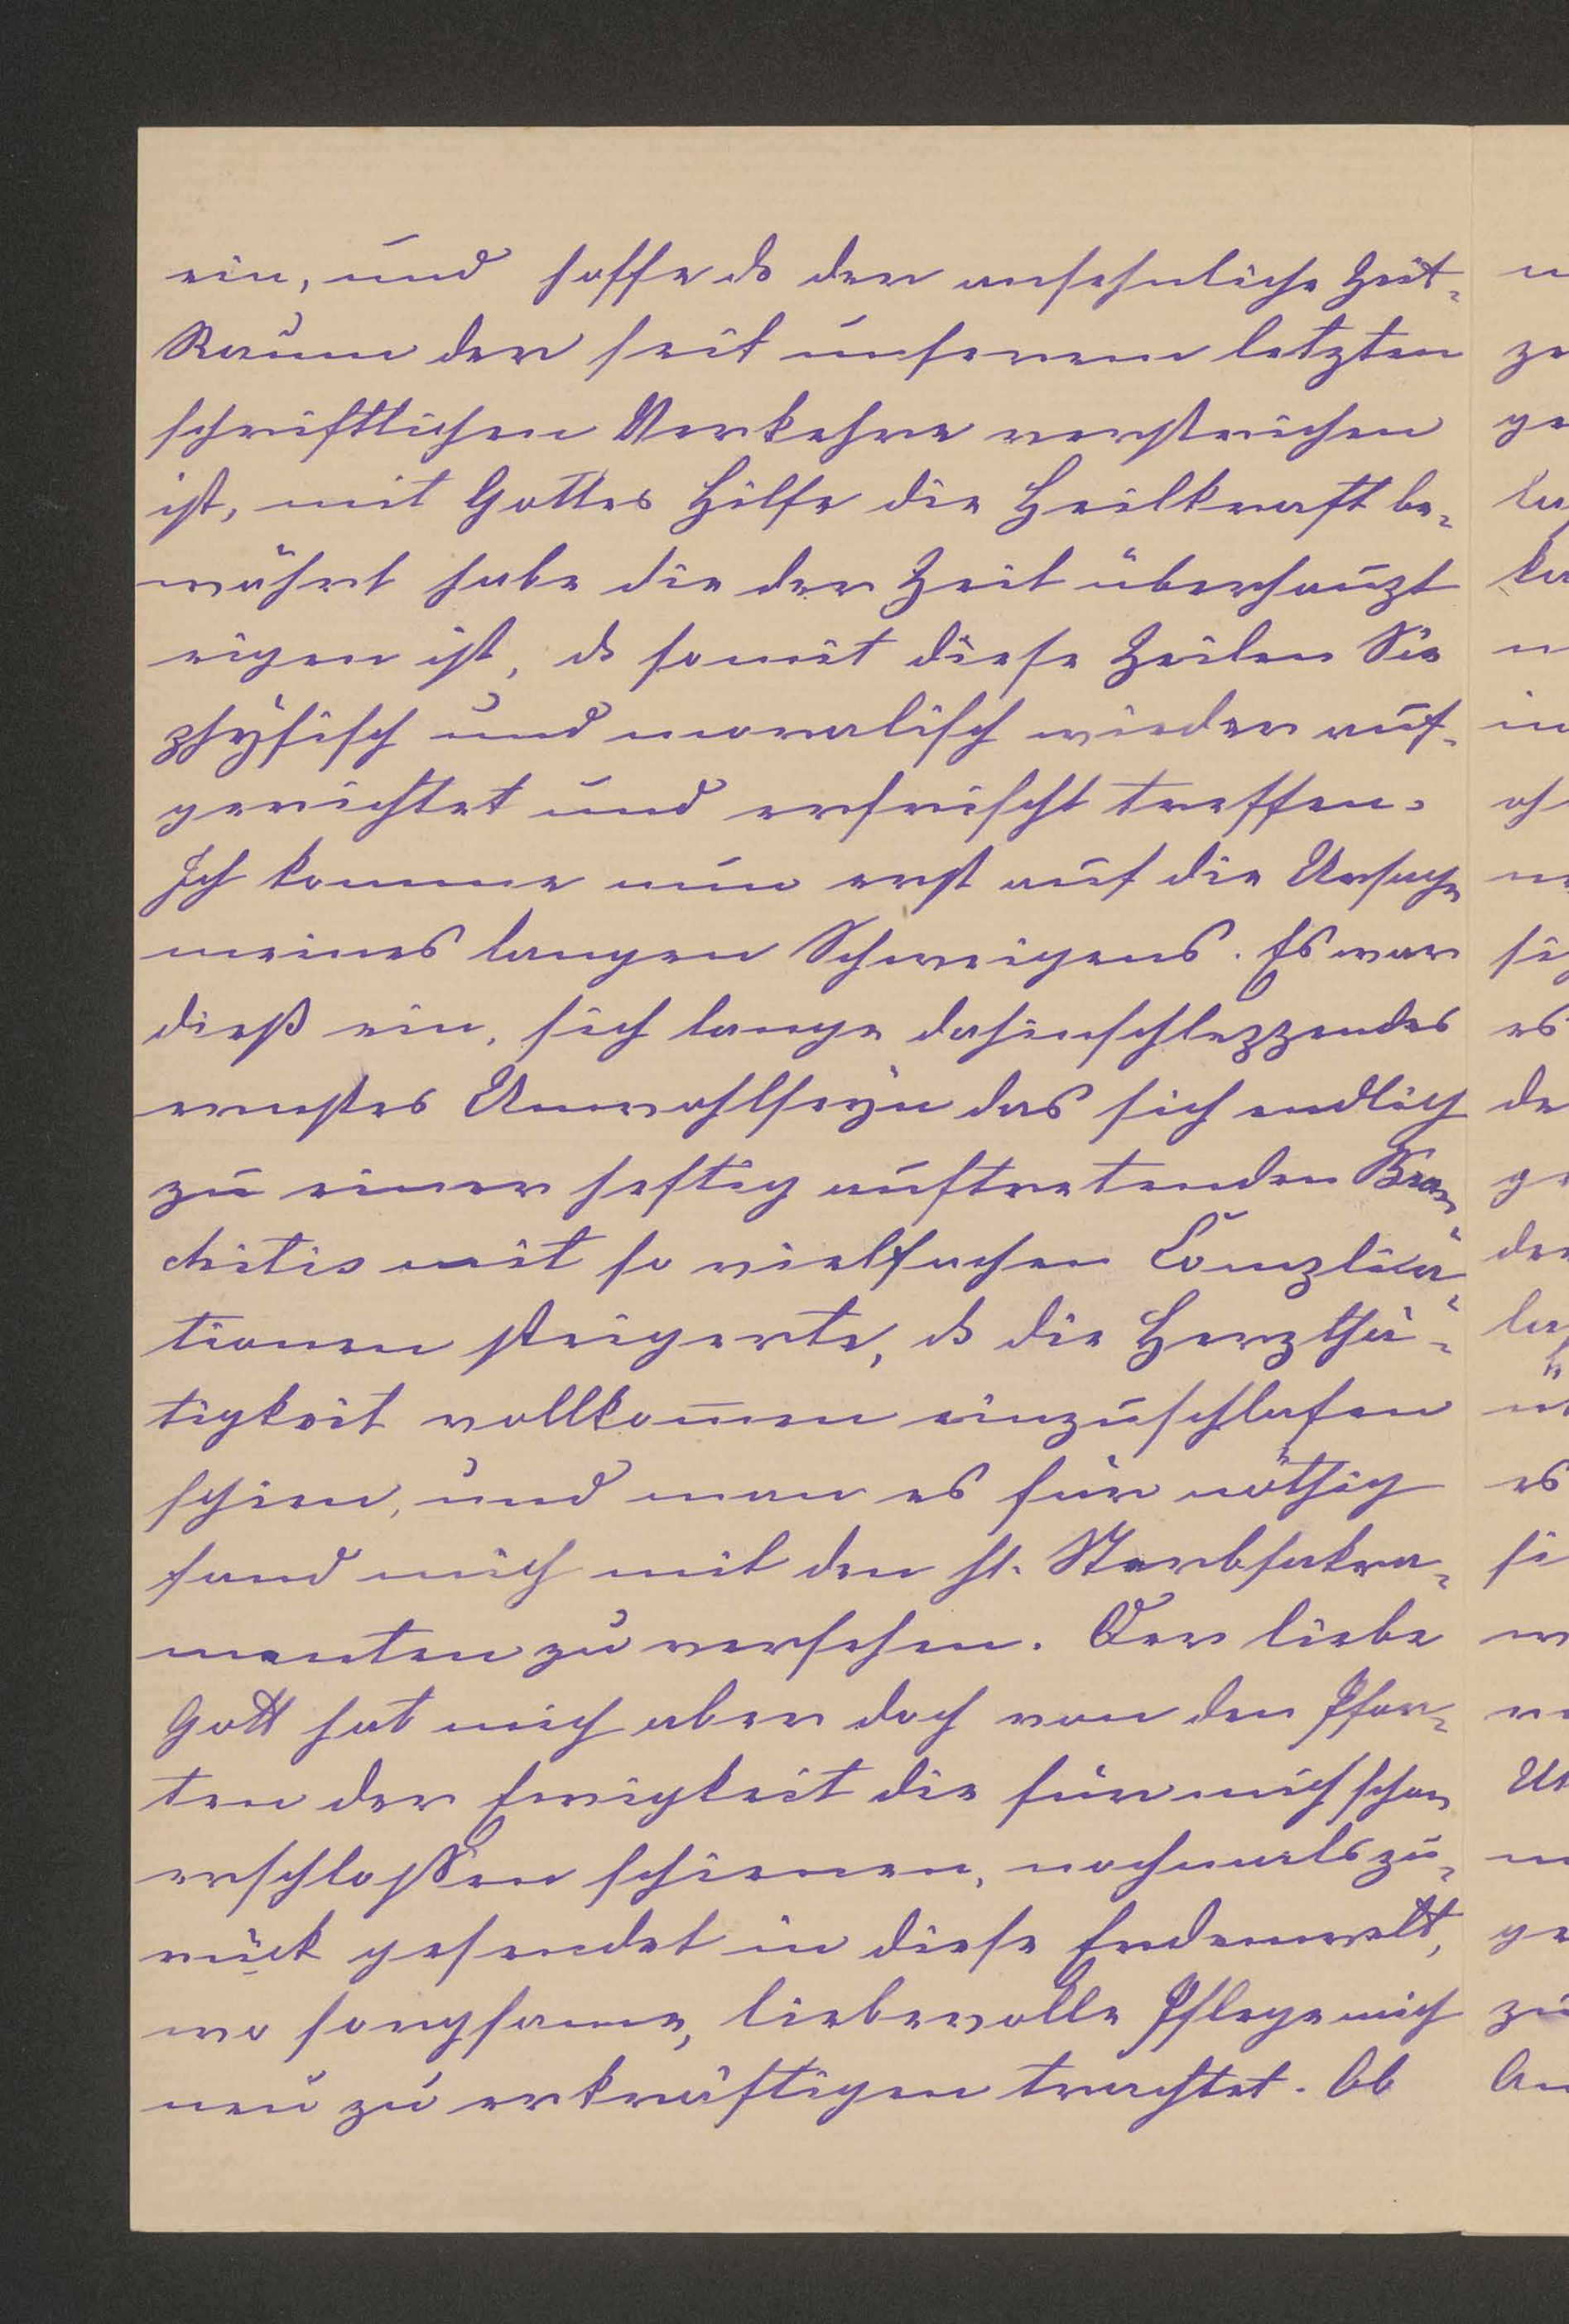 ein, und hoffe ds der ansehnliche Zeit-
Raum der seit unserem letzten
schriftlichen Verkehre verstrichen
ist, mit Gottes Hilfe die Heilkraft be-
währt habe die der Zeit überhaupt
eigen ist, ds somit diese Zeilen Sie
physisch und moralisch wieder auf-
gerichtet und erfrischt treffen.
Ich komme nun erst auf die Ursache
meines langen Schweigens. Es war
dieß ein, sich lange dahinschleppendes
ernstes Unwohlseyn das sich endlich
zu einer heftig auftretenden Bron-
chitis mit so vielfachen Complica-
tionen steigerte, ds die Herzthä-
tigkeit vollkom̅en einzuschlafen
schien, und man es für nöthig
fand mich mit den hl. Sterbsakra-
menten zu versehen. Der liebe
Gott hat mich aber doch von den Pfor-
ten der Ewigkeit die für mich schon
erschloßen schienen, nochmals zu-
rück gesendet in diese Erdenwelt,
wo sorgsame, liebevolle Pflege mich
neu zu erkräftigen trachtet. Ob